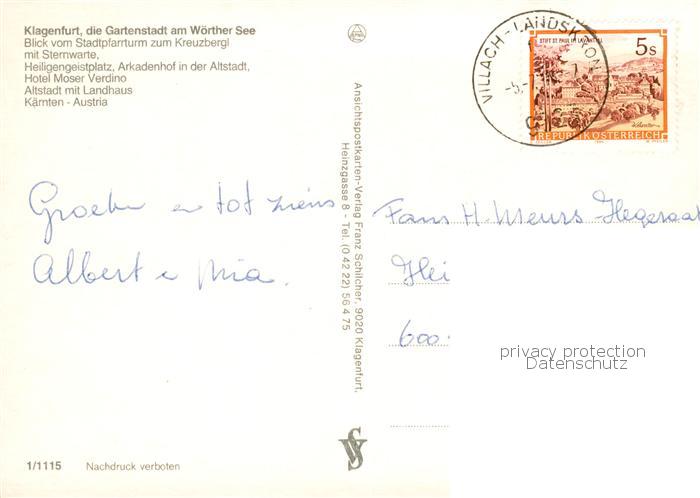 Klagenfurt, die Gartenstadt am Wörther See
Blick vom Stadtpfarrturm zum Kreuzbergl
mit Sternwarte,
Heiligengeistplatz, Arkadenhof in der Altstadt,
Hotel Moser Verdino
Altstadt mit Landhaus
Kärnten - Austria
VILLACH-LANDSKRON
STIFT ST. PAUL IM LAVANTTAL
5s
REPUBLIK ÖSTERREICH
Groeten en tot ziens
Albert en Mia.
Ansichtspostkarten-Verlag Franz Schilcher, 9020 Klagenfurt,
Heinzgasse 8 - Tel. (0 42 22) 56 4 75
Fam H. Meurs Hegeraat
Hei
600
privacy protection
Datenschutz
1/1115 Nachdruck verboten